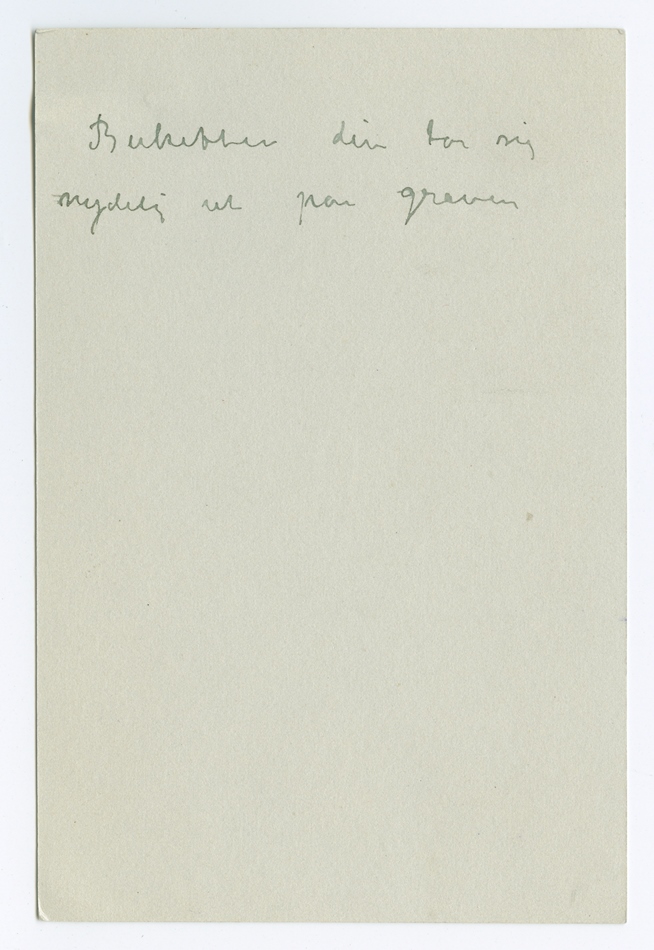 Buketten din tar sig
nydelig ut paa graven